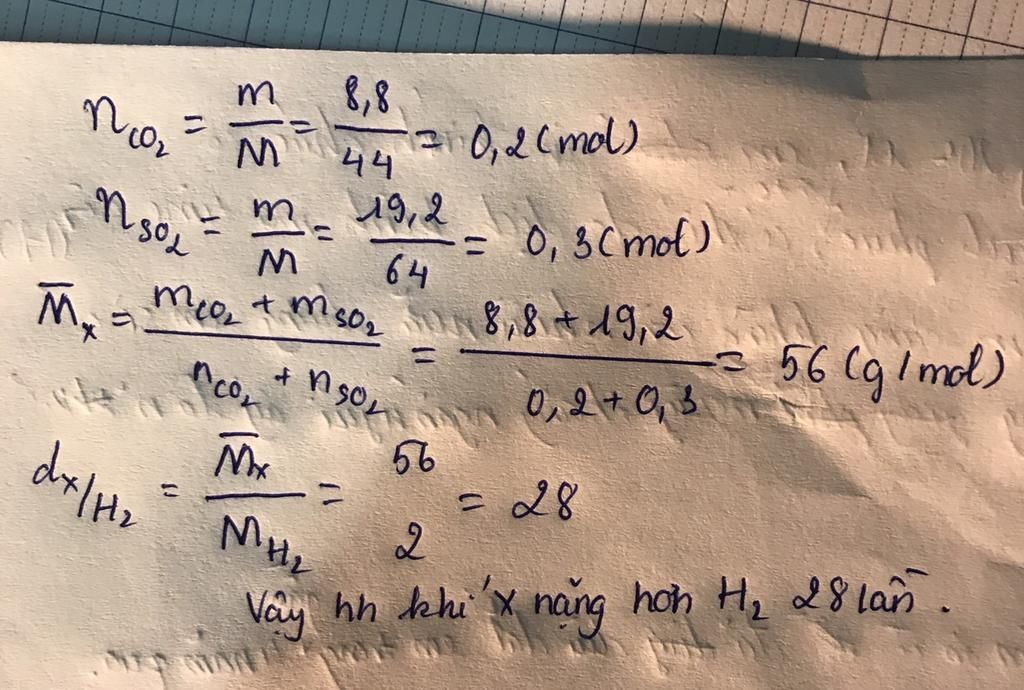 n_CO₂ = m/M = 8,8/44 = 0,2 (mol)
n_SO₂ = m/M = 19,2/64 = 0,3 (mol)
M̅_x = (m_CO₂ + m_SO₂)/(n_CO₂ + n_SO₂) = (8,8 + 19,2)/(0,2 + 0,3) = 56 (g/mol)
d_x/H₂ = M̅_x/M_H₂ = 56/2 = 28
Vậy hh khí x nặng hơn H₂ 28 lần.